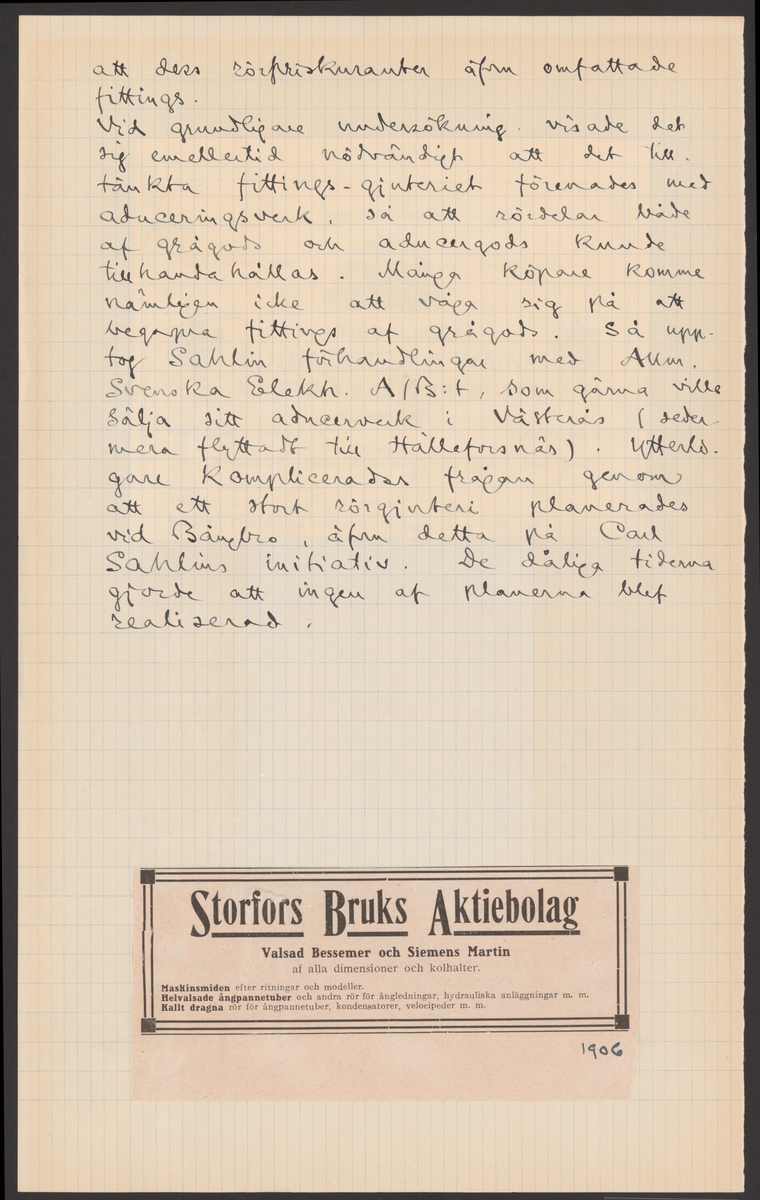 att dess rörpriskuranter äfvn omfattade
fittings.
Vid grundligare undersökning visade det
sig emellertid nödvändigt att det till-
tänkta fittings-gjuteriet förenades med
aduceringsverk, så att rördelar både
af grågods och aducergods kunde
tillhandahållas. Många köpare komme
nämligen icke att våga sig på att
begagna fittings af grågods. Så upp-
tog Sahlin förhandlingar med Allm.
Svenska Elektr. A/B:t, som gärna ville
sälja sitt aducerverk i Västerås (seder-
mera flyttadt till Hälleforsnäs). Ytterli-
gare komplicerades frågan genom
att ett stort rörgjuteri planerades
vid Bångbro, äfvn detta på Carl
Sahlins initiativ. De dåliga tiderna
gjorde att ingen af planerna blef
realiserad.
Storfors Bruks Aktiebolag
Valsad Bessemer och Siemens Martin
af alla dimensioner och kolhalter.
Maskinsmiden efter ritningar och modeller.
Helvalsade ångpannetuber och andra rör för ångledningar, hydrauliska anläggningar m. m.
Kallt dragna rör för ångpannetuber, kondensatorer, velocipeder m. m.
1906